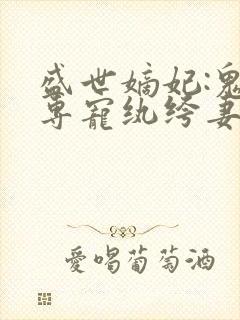 盛世嫡妃:鬼
专宠纨绔妻
愛喝葡萄酒